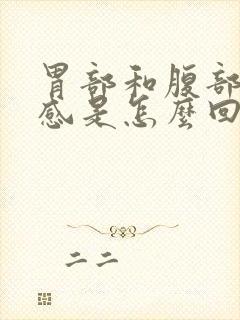 胃部和腹部
感是怎麼回
二二